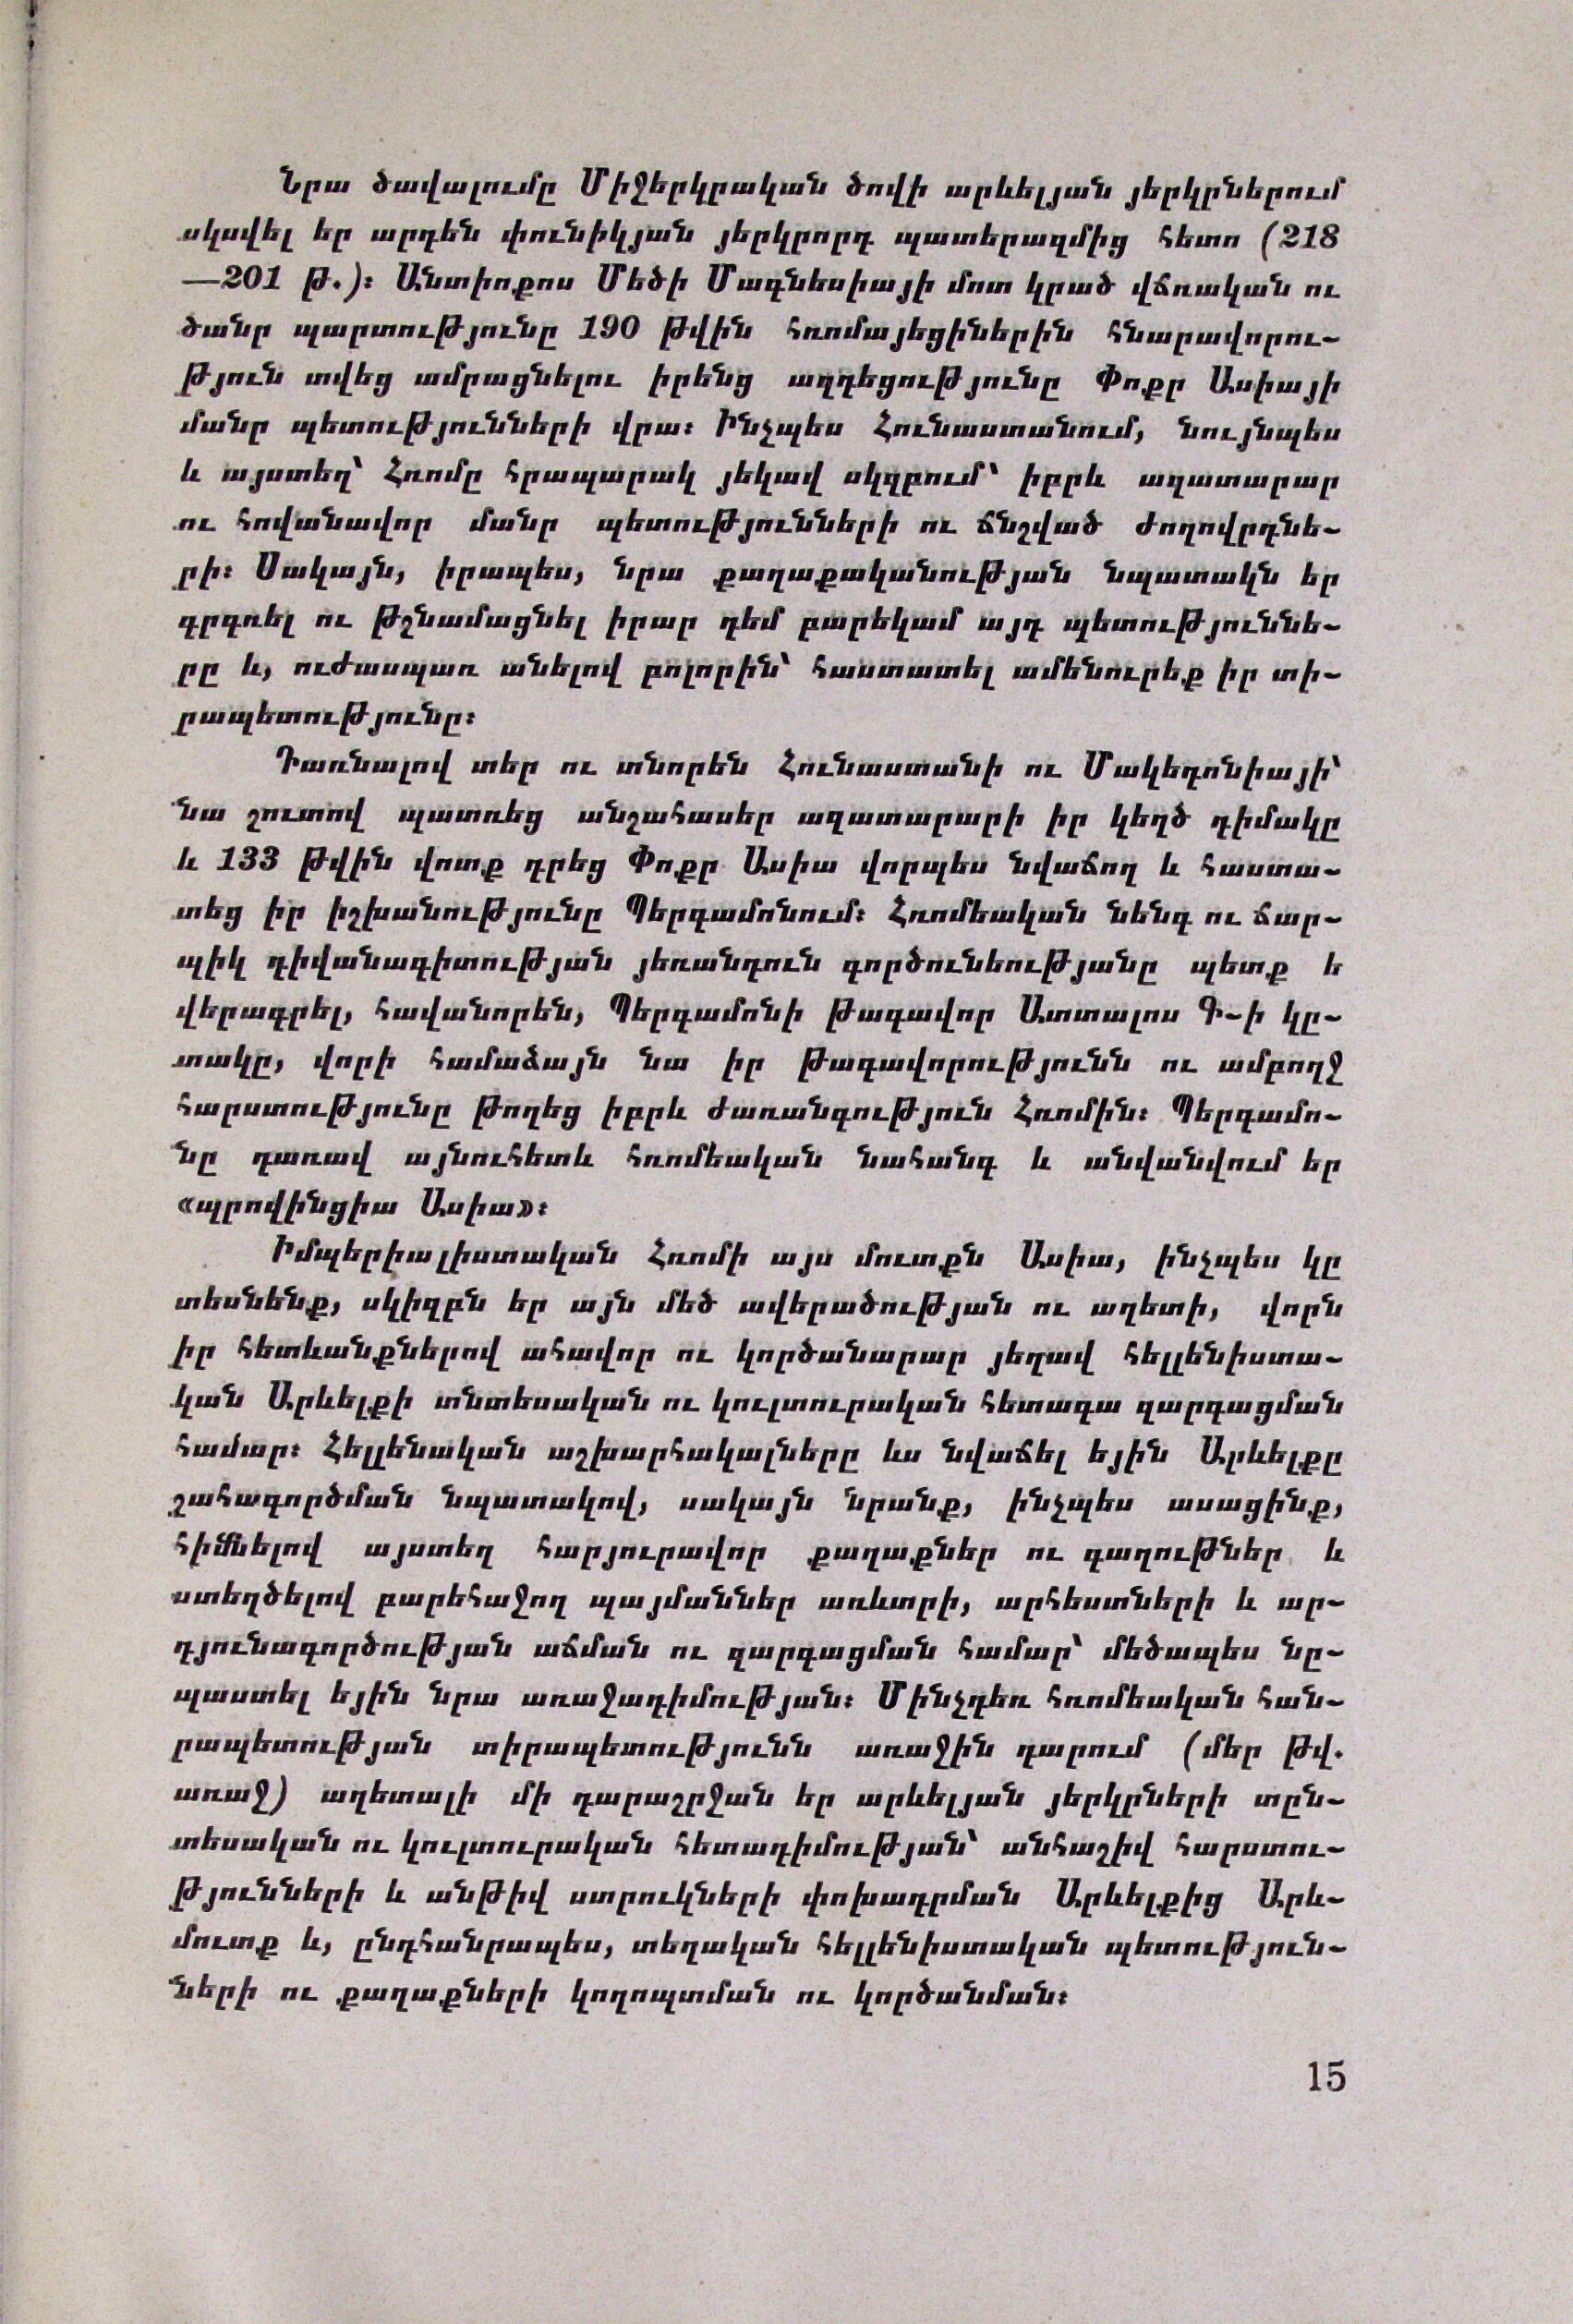 Նրա ծավալումը Միջերկրական ծովի արևելյան յերկրներում
սկսվել եր արդեն փունիկյան յերկրորդ պատերազմից հետո (218
—201 թ.)։ Անտիոքոս Մեծի Մագնեսիայի մոտ կրած վճռական ու
ծանր պարտությունը 190 թվին հռոմայեցիներին հնարավորու-
թյուն տվեց ամրացնելու իրենց ազդեցությունը Փոքր Ասիայի
մանր պետությունների վրա։ Ինչպես Հունաստանում, նույնպես
և այստեղ՝ Հռոմը հրապարակ յեկավ սկզբում՝ իբրև ազատարար
ու հովանավոր մանր պետությունների ու ճնշված ժողովրդնե-
րի։ Սակայն, իրապես, նրա քաղաքականության նպատակն եր
գրգռել ու թշնամացնել իրար դեմ բարեկամ այդ պետություննե-
րը և, ուժասպառ անելով բոլորին՝ հաստատել ամենուրեք իր տի-
րապետությունը։
Դառնալով տեր ու տնորեն Հունաստանի ու Մակեդոնիայի՝
նա շուտով պատռեց անշահասեր ազատարարի իր կեղծ դիմակը
և 133 թվին վոտք դրեց Փոքր Ասիա վորպես նվաճող և հաստա-
տեց իր իշխանությունը Պերգամոնում։ Հռոմեական նենգ ու ճար-
պիկ դիվանագիտության յեռանդուն գործունեությանը պետք ե
վերագրել, հավանորեն, Պերգամոնի թագավոր Ատտալոս Գ-ի կը-
տակը, վորի համաձայն նա իր թագավորությունն ու ամբողջ
հարստությունը թողեց իբրև ժառանգություն Հռոմին։ Պերգամո-
նը դառավ այնուհետև հռոմեական նահանգ և անվանվում եր
«պրովինցիա Ասիա»։
Իմպերիալիստական Հռոմի այս մուտքն Ասիա, ինչպես կը
տեսնենք, սկիզբն եր այն մեծ ավերածության ու աղետի, վորն
իր հետևանքներով ահավոր ու կործանարար յեղավ հելլենիստա-
կան Արևելքի տնտեսական ու կուլտուրական հետագա զարգացման
համար։ Հելլենական աշխարհակալները ևս նվաճել եյին Արևելքը
շահագործման նպատակով, սակայն նրանք, ինչպես ասացինք,
հիմնելով այստեղ հարյուրավոր քաղաքներ ու գաղութներ և
ստեղծելով բարեհաջող պայմաններ առևտրի, արհեստների և ար-
դյունագործության աճման ու զարգացման համար՝ մեծապես նը-
պաստել եյին նրա առաջադիմության։ Մինչդեռ հռոմեական հան-
րապետության տիրապետությունն առաջին դարում (մեր թվ.
առաջ) աղետալի մի դարաշրջան եր արևելյան յերկրների տըն-
տեսական ու կուլտուրական հետադիմության՝ անհաշիվ հարստու-
թյունների և անթիվ ստրուկների փոխադրման Արևելքից Արև-
մուտք և, ընդհանրապես, տեղական հելլենիստական պետություն-
ների ու քաղաքների կողոպտման ու կործանման։
15